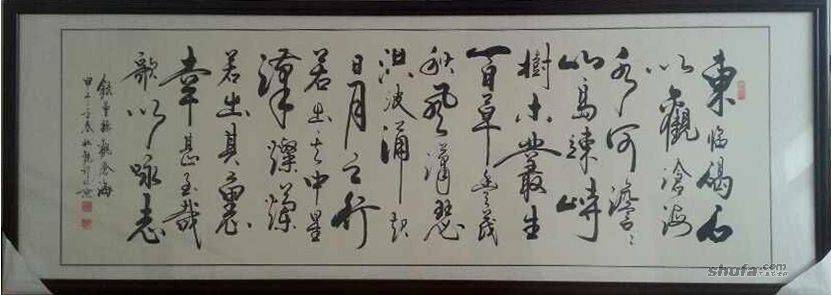 東臨碣石
以觀滄海
水何澹々
山島竦峙
樹木叢生
百草豐茂
秋風蕭瑟
洪波涌起
日月之行
若出其中星
漢燦爛
若出其裏
幸甚至哉
歌以咏志
錄曹操觀滄海
甲午年春
shufa.com